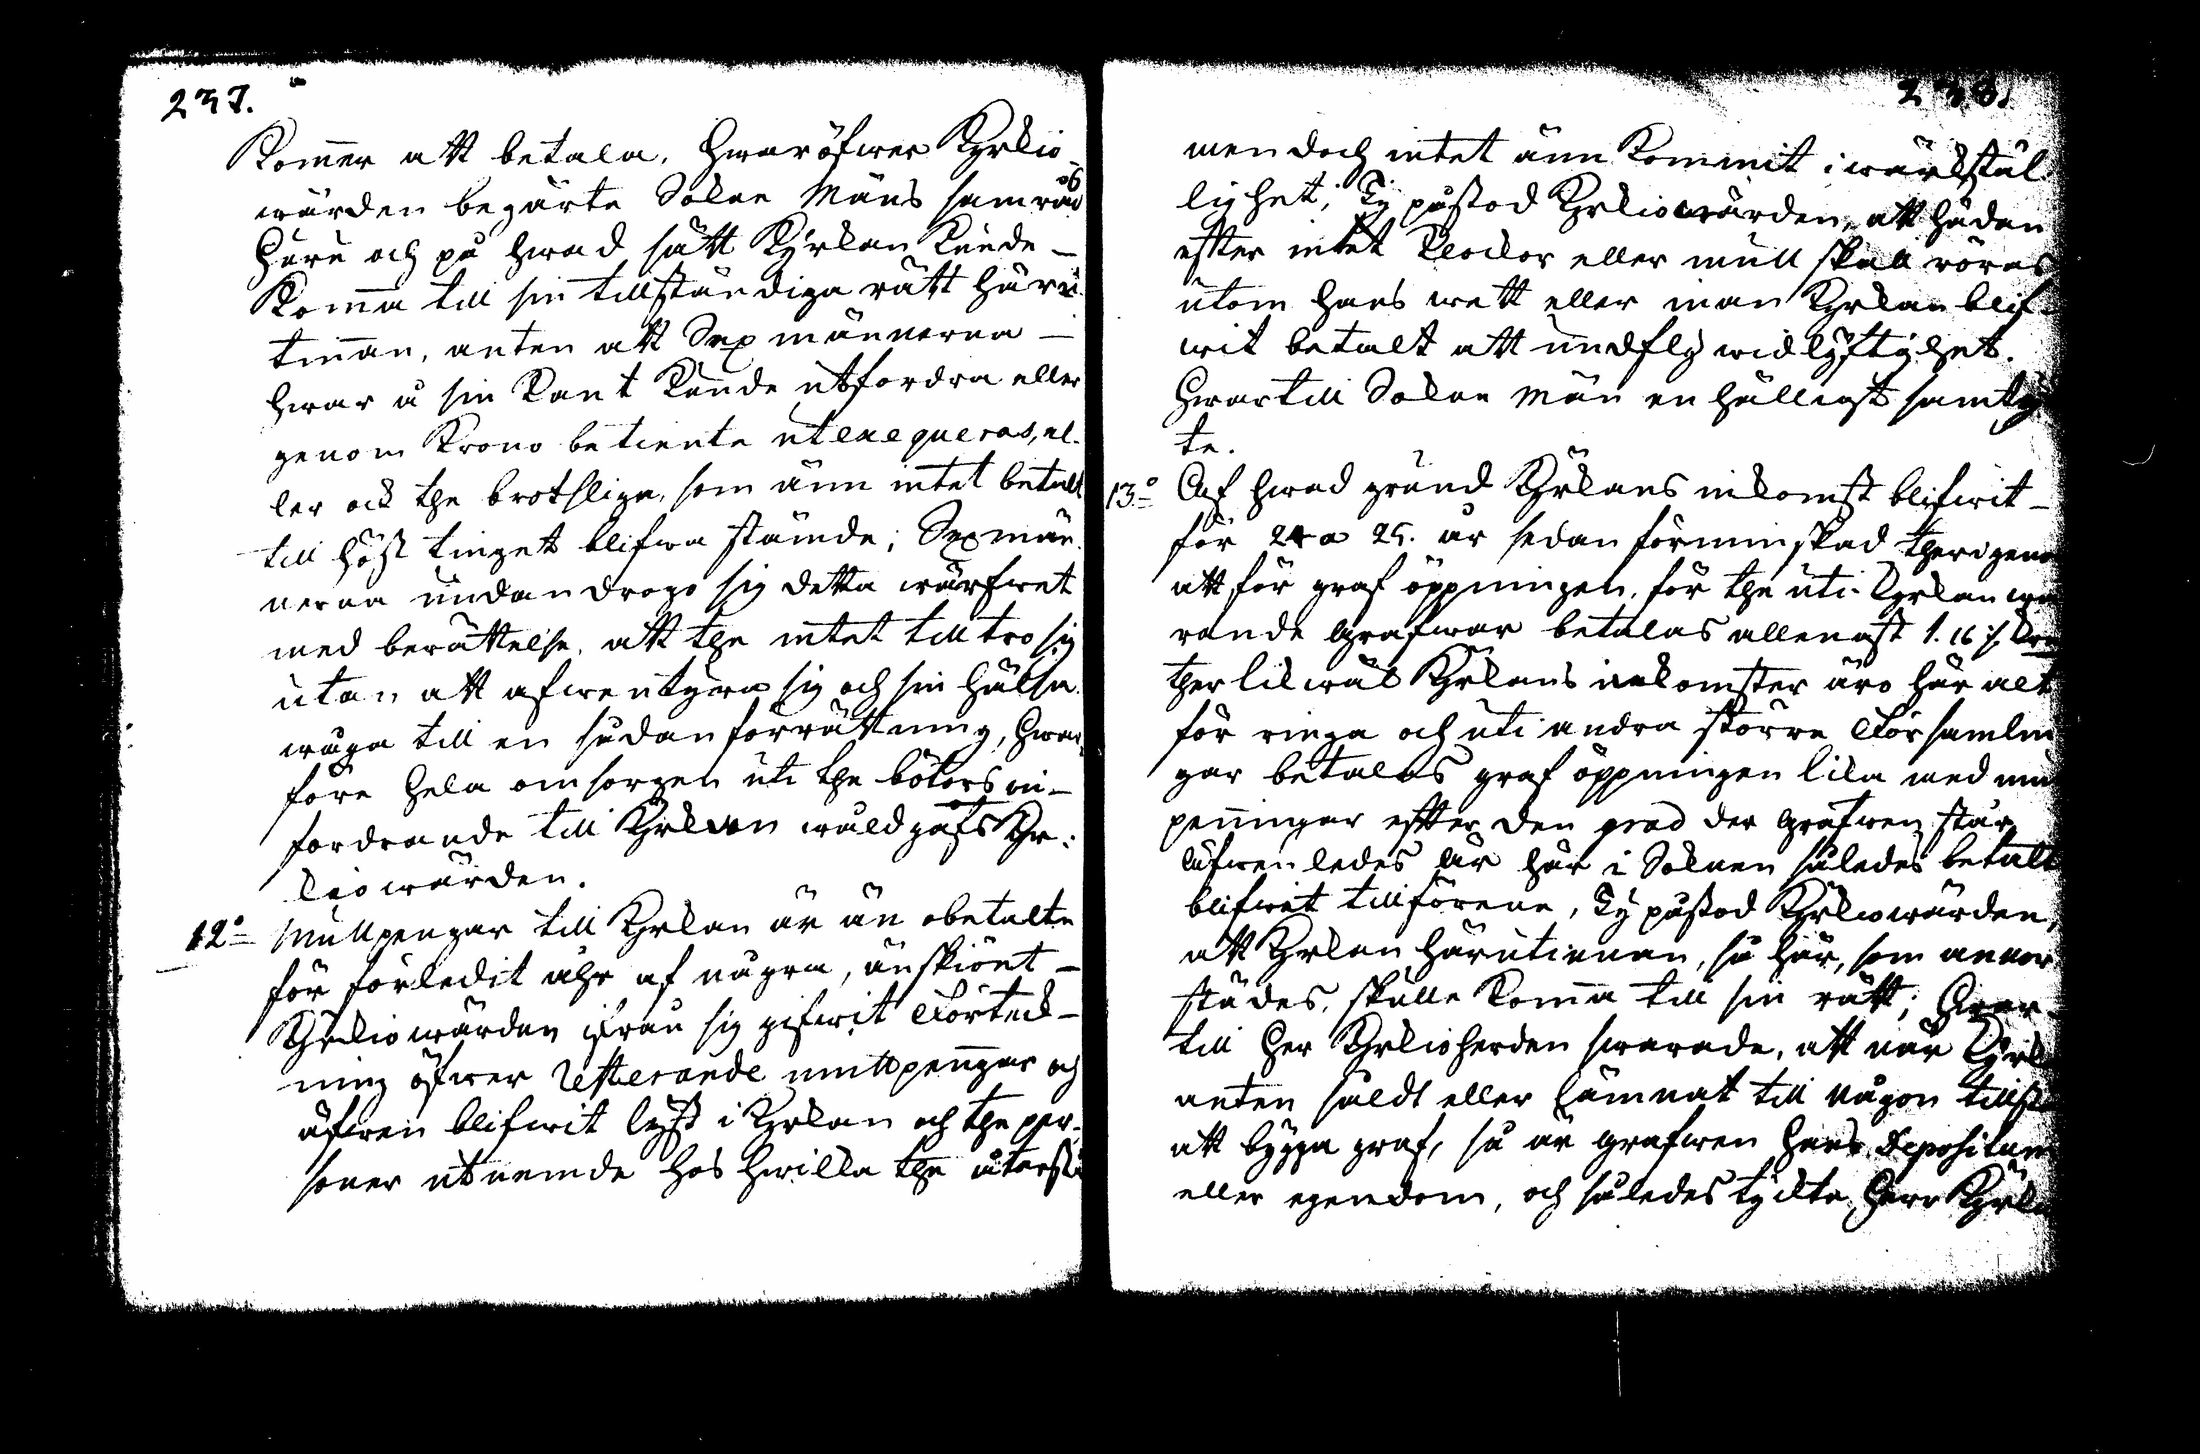 237.
Kommer att betala. Hwaröfwer Kyrkio-
wärden begärte Soknemäns samråd
Huru och på hwad sätt Kyrkan kunde
Komma till sin tillständiga rätt häru-
tinnan, anten att Sexmännerna
hwar å sin kant kunde utfordra eller
genom Krono betiente utexequeras, el-
ler ock the brotslige, som änn intet betalt
till höst tinget blifwa stämde; Sexmän-
nerna undandrogo sig detta wärfwet
med berättelse, att the intet till tro sig
utan att äfwentyra sig och sin hälsa
wåga till en sådan förrättning, Hwar-
före hela omsorgen uti the böters in-
fordrande till Kyrkan updrogs Kyr-
kiowärden.
12o Mullpengar till Kyrkan är än obetalte
för förledit ahr af någre, änskiönt
Kyrkiowärden ifrån sig gifwit Förteck-
ning öfwer resterande mullpenngar och
äfwen blifwit lyst i Kyrkan och the per-
soner utnemde hos hwilka the återstå
238.
men doch intet änn kommit i wärkstäl-
lighet; Ty påstod Kyrkiowärden, att hädan
effter intet klockor eller mull skall röras
utom hans wett eller innan Kyrkan blif-
wit betalt att undfly widlyftighet.
Hwartill Sokne Män enhälleligt samtyck-
te.
13o Af hwad grund Kyrkans inkomst blifwit
för 24 a 25. år sedan förminskad therigenom
att för graföppningen, för the uti Kyrkan wa-
rande Grafwar betalas allenast 1. 16 /.
ther likwäl Kyrkans inkomster äro här alt
för ringa och uti andra större Församlin-
gar betalas graföppningen lika med mull
penningar effter den grad der grafwen står
äfwenledes är här i Soknen således betalt
blifwit tillförene, Ty påstod Kyrkiowärden,
att Kyrkan härutinnan, så här, som annor-
städes, skulle komma till sin rätt; Hwar-
till Her Kyrkioherden swarade, att när Kyrkan
anten såldt eller lämnat till någon tillstånd
att bygga graf, så är grafwen hans depositum
eller egendom, och således tyckte Herr Kyrkio